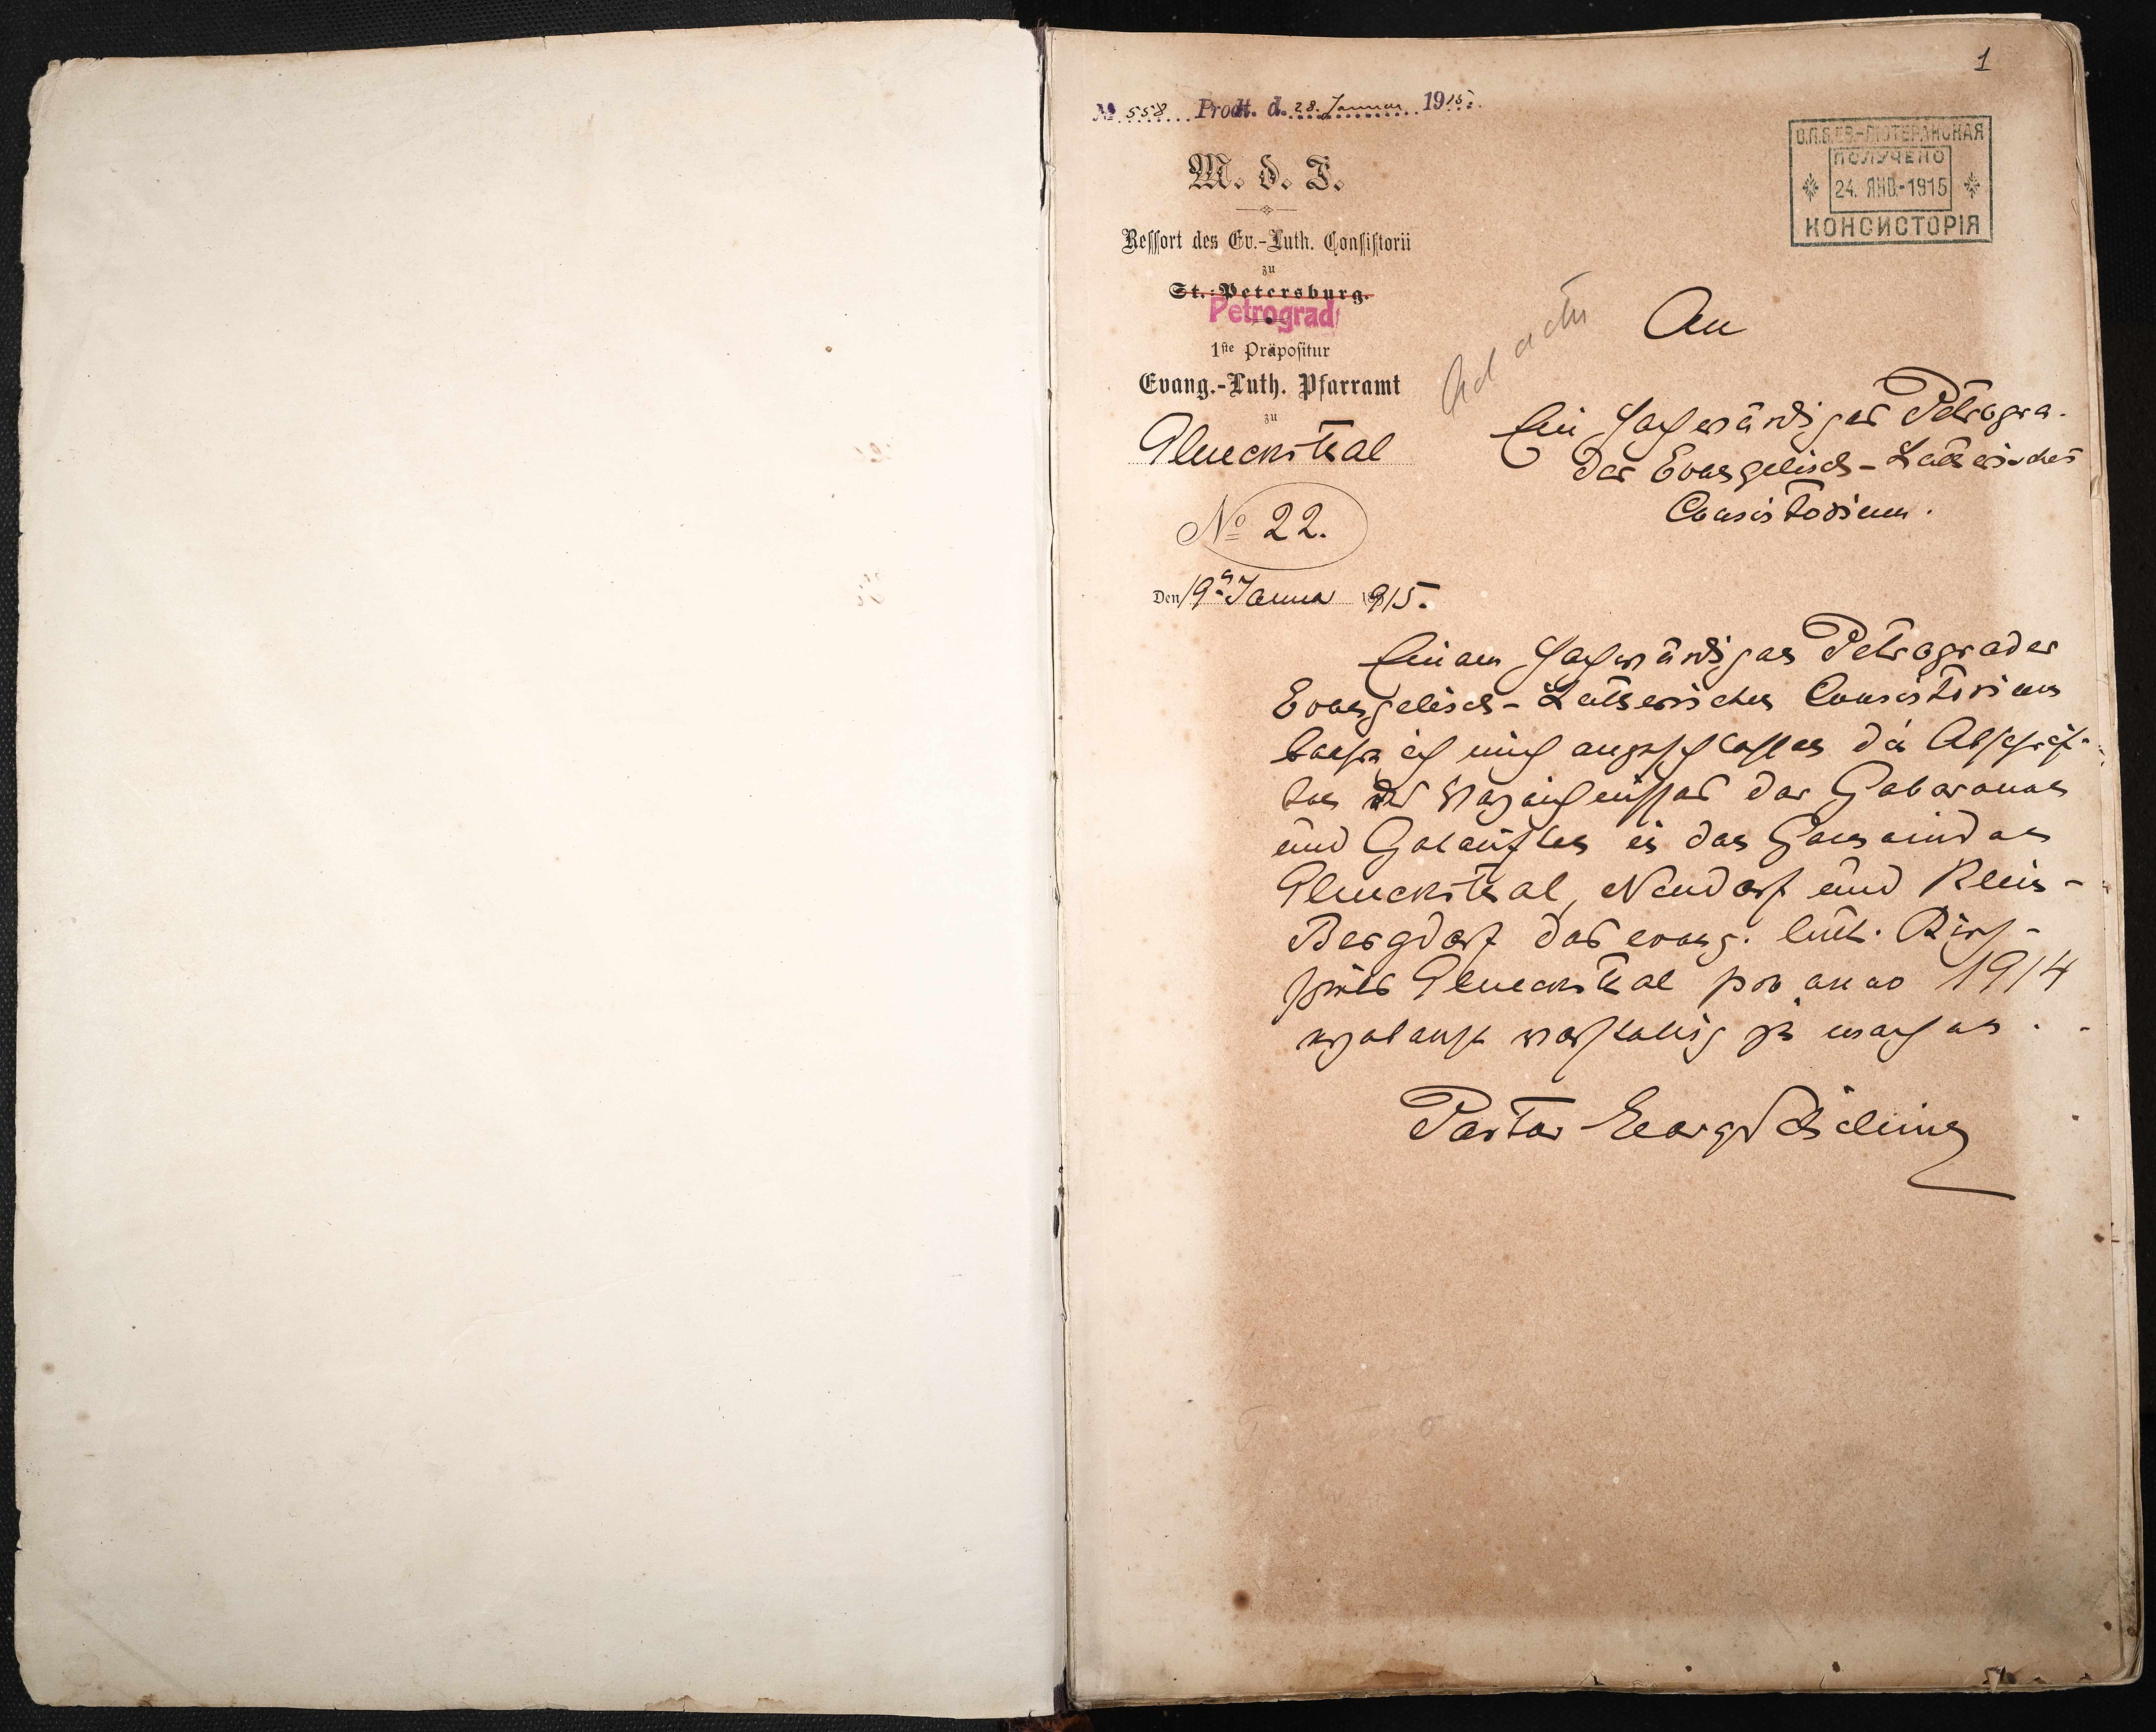 1
№ 558 Prodt. d. 28. Januar 1915.
О.П.Б.ЕВ.-ЛЮТЕРАНСКАЯ
ПОЛУЧЕНО
24. ЯНВ.-1915
КОНСИСТОРІЯ
M. d. I.
Ressort des Ev.-Luth. Consistorii
zu
St.-Petersburg.
Petrograd
1ste Präpositur
Evang.-Luth. Pfarramt
zu
Glueckstal
№ 22.
Den 19. Januar 1915.
Ad acta
An
Ein Hochwürdiges Petrogra-
der Evangelisch-Lutherisches
Consistorium.
Einem Hochwürdigen Petrograder
Evangelisch-Lutherischen Consistorium
beehre ich mich angeschlossen die Abschrif-
ten des Verzeichnisses der Geborenen
und Getauften in den Gemeinden
Glueckstal, Neudorf und Klein-
Bergdorf des evang. luth. Kirch-
spiels Glueckstal pro anno 1914
ergebenst vorstellig zu machen.
Pastor Georg Schilling